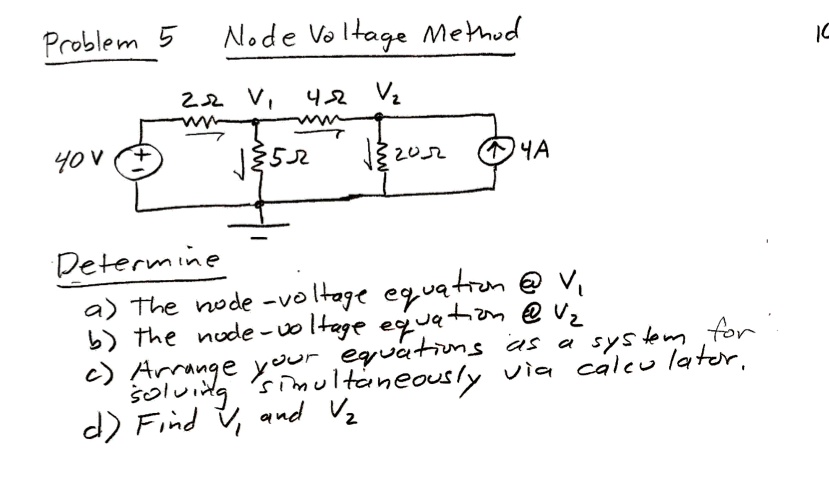 Problem 5 Node Voltage Method
2Ω V₁ 4Ω V₂
40 V + - 5Ω 20Ω 4A
Determine
a) The node-voltage equation @ V₁
b) The node-voltage equation @ V₂
c) Arrange your equations as a system for
solving simultaneously via calculator.
d) Find V₁ and V₂